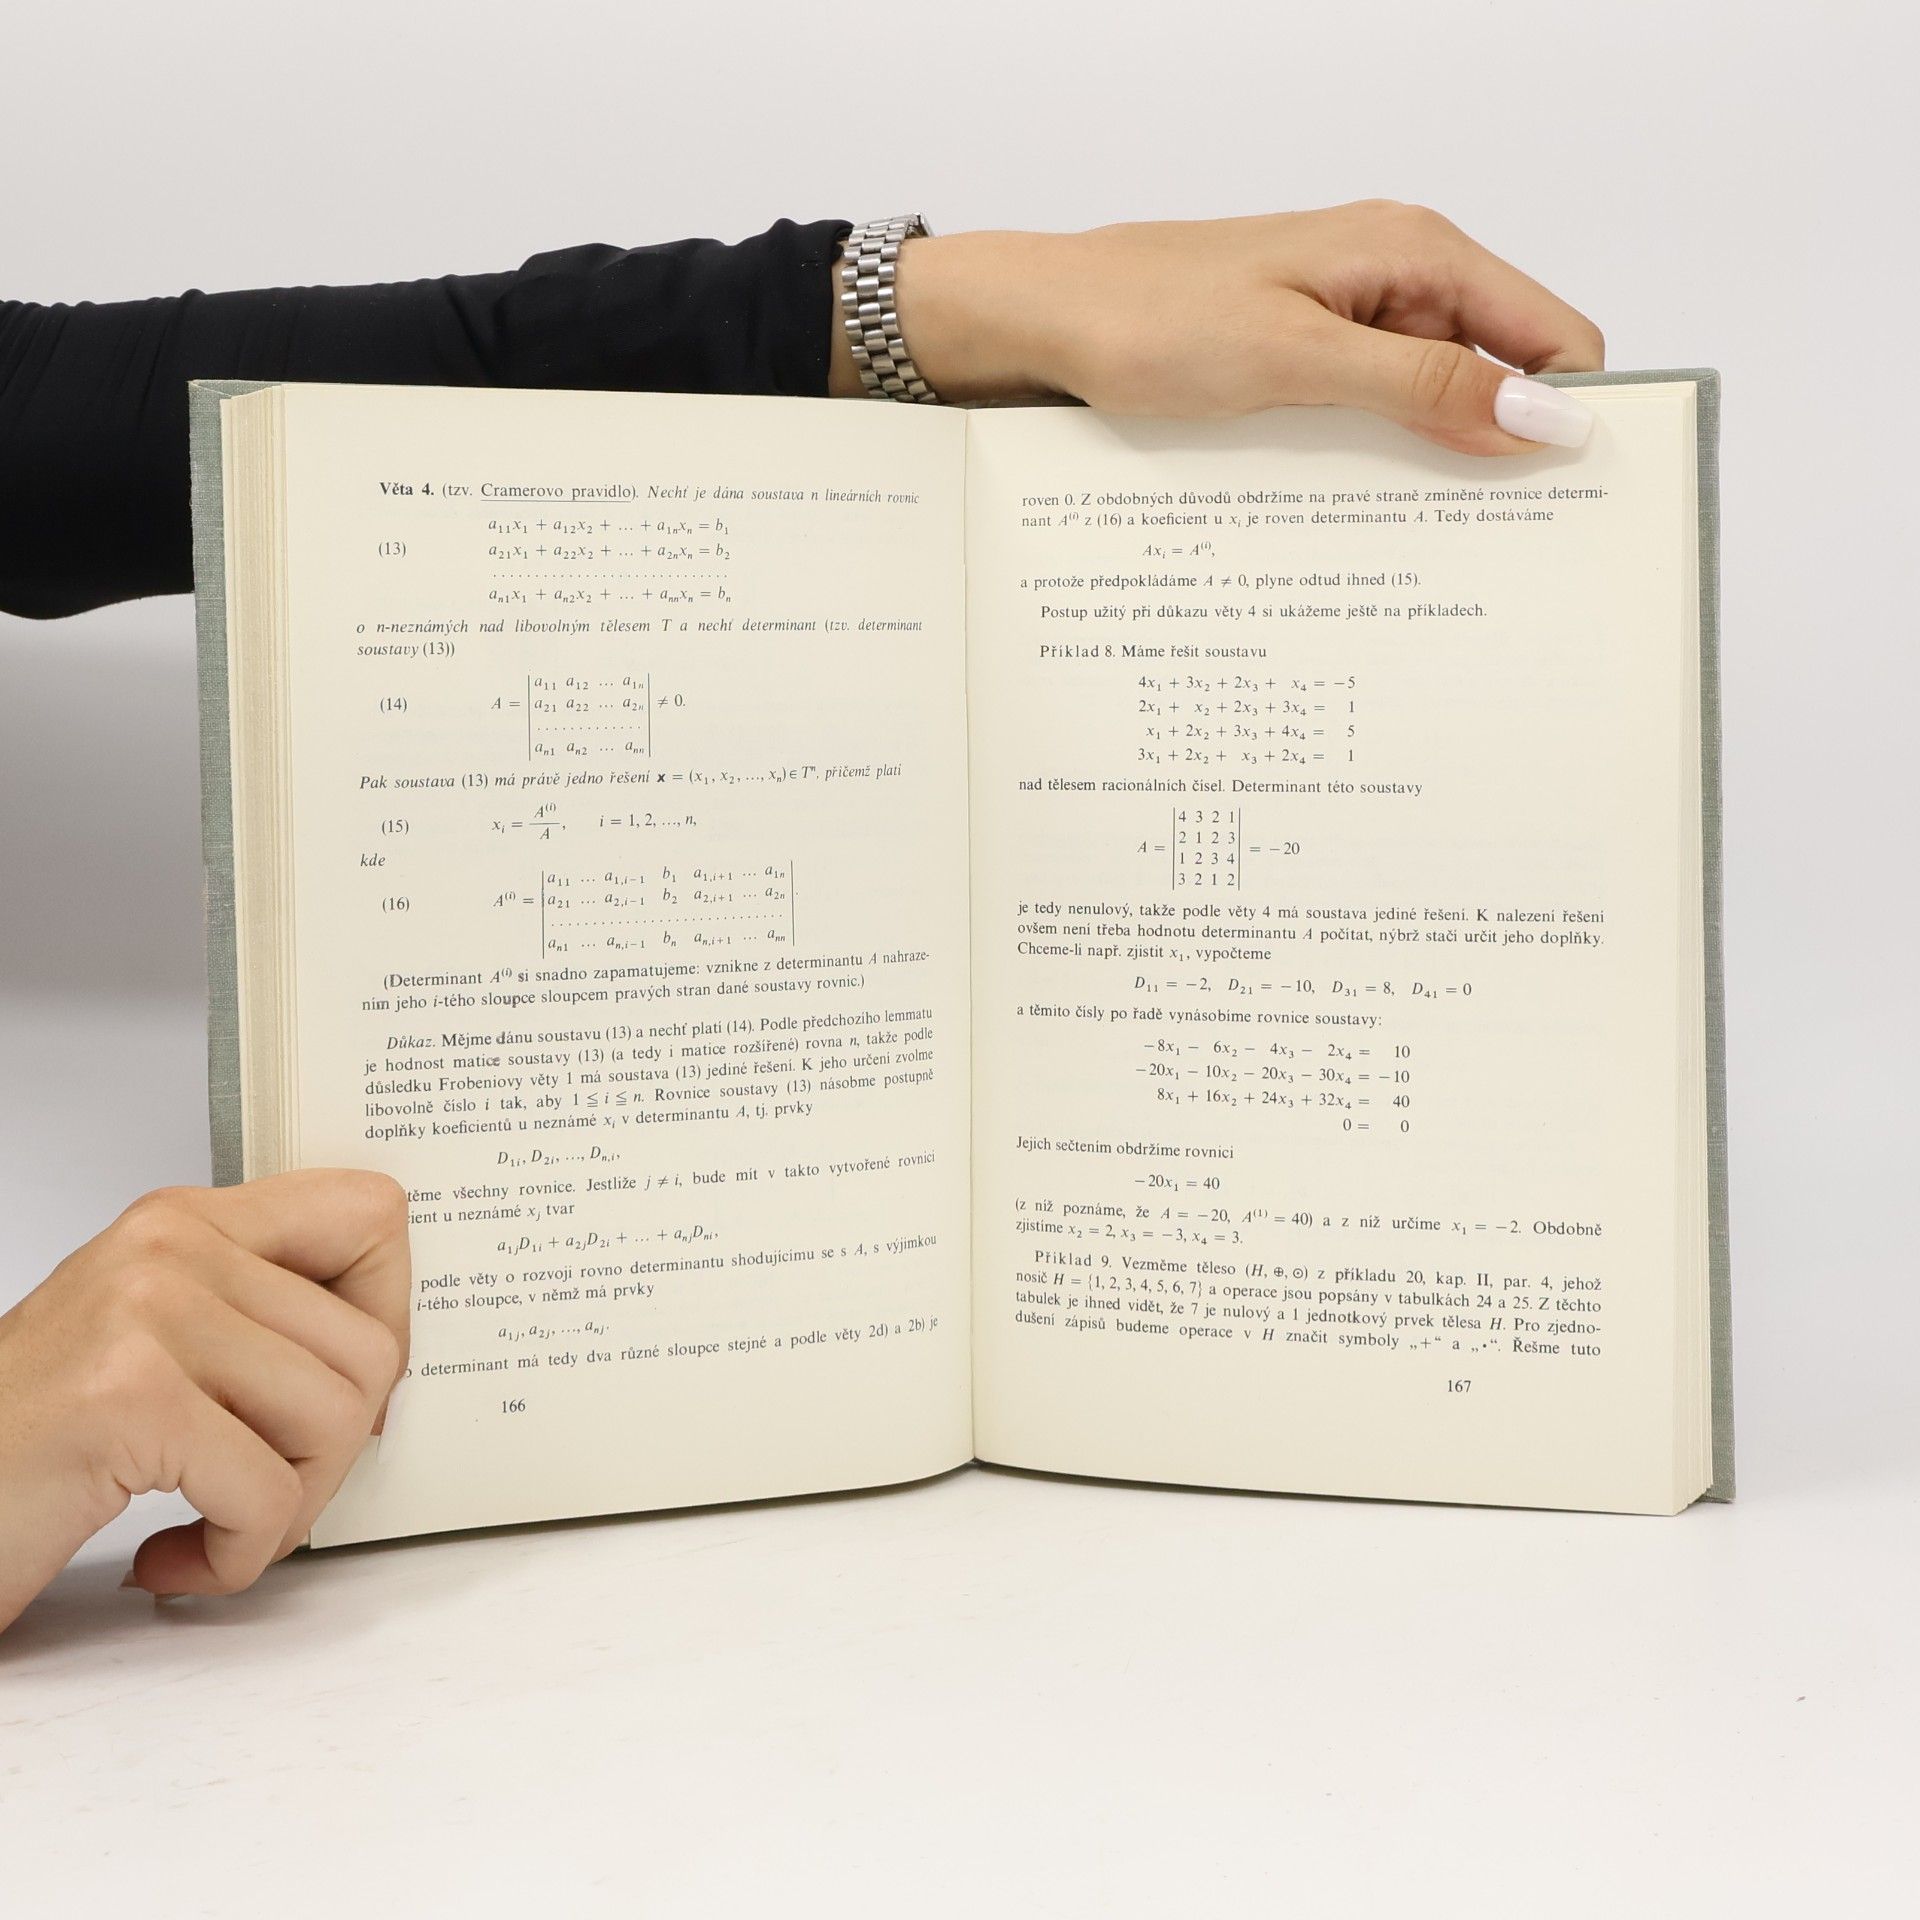 Věta 4. (tzv. Cramerovo pravidlo). Nechť je dána soustava n lineárních rovnic
a₁₁x₁ + a₁₂x₂ + ... + a₁ₙxₙ = b₁
(13) a₂₁x₁ + a₂₂x₂ + ... + a₂ₙxₙ = b₂
. . . . . . . . . . . . . . . . . . . . . . . . . . . .
aₙ₁x₁ + aₙ₂x₂ + ... + aₙₙxₙ = bₙ
o n-neznámých nad libovolným tělesem T a nechť determinant (tzv. determinant
soustavy (13))
a₁₁ a₁₂ ... a₁ₙ
(14) A = a₂₁ a₂₂ ... a₂ₙ ≠ 0.
. . . . . . . . . . . . .
aₙ₁ aₙ₂ ... aₙₙ
Pak soustava (13) má právě jedno řešení x = (x₁, x₂, ..., xₙ) ∈ Tⁿ, přičemž platí
(15) xᵢ = A⁽ⁱ⁾/A, i = 1, 2, ..., n,
kde
a₁₁ ... a₁,ᵢ₋₁ b₁ a₁,ᵢ₊₁ ... a₁ₙ
(16) A⁽ⁱ⁾ = a₂₁ ... a₂,ᵢ₋₁ b₂ a₂,ᵢ₊₁ ... a₂ₙ .
. . . . . . . . . . . . . . . . . . . . . . . . . . . .
aₙ₁ ... aₙ,ᵢ₋₁ bₙ aₙ,ᵢ₊₁ ... aₙₙ
(Determinant A⁽ⁱ⁾ si snadno zapamatujeme: vznikne z determinantu A nahraze-
ním jeho i-tého sloupce sloupcem pravých stran dané soustavy rovnic.)
Důkaz. Mějme dánu soustavu (13) a nechť platí (14). Podle předchozího lemmatu
je hodnost matice soustavy (13) (a tedy i matice rozšířené) rovna n, takže podle
důsledku Frobeniovy věty 1 má soustava (13) jediné řešení. K jeho určení zvolme
libovolně číslo i tak, aby 1 ≦ i ≦ n. Rovnice soustavy (13) násobme postupně
doplňky koeficientů u neznámé xᵢ v determinantu A, tj. prvky
D₁ᵢ, D₂ᵢ, ..., Dₙ,ᵢ,
těme všechny rovnice. Jestliže j ≠ i, bude mít v takto vytvořené rovnici
cient u neznámé xⱼ tvar
a₁ⱼD₁ᵢ + a₂ⱼD₂ᵢ + ... + aₙⱼDₙᵢ,
podle věty o rozvoji rovno determinantu shodujícímu se s A, s výjimkou
i-tého sloupce, v němž má prvky
a₁ⱼ, a₂ⱼ, ..., aₙⱼ.
determinant má tedy dva různé sloupce stejné a podle věty 2d) a 2b) je
166
roven 0. Z obdobných důvodů obdržíme na pravé straně zmíněné rovnice determi-
nant A⁽ⁱ⁾ z (16) a koeficient u xᵢ je roven determinantu A. Tedy dostáváme
Axᵢ = A⁽ⁱ⁾,
a protože předpokládáme A ≠ 0, plyne odtud ihned (15).
Postup užitý při důkazu věty 4 si ukážeme ještě na příkladech.
Příklad 8. Máme řešit soustavu
4x₁ + 3x₂ + 2x₃ + x₄ = −5
2x₁ + x₂ + 2x₃ + 3x₄ = 1
x₁ + 2x₂ + 3x₃ + 4x₄ = 5
3x₁ + 2x₂ + x₃ + 2x₄ = 1
nad tělesem racionálních čísel. Determinant této soustavy
4 3 2 1
2 1 2 3
A = = −20
1 2 3 4
3 2 1 2
je tedy nenulový, takže podle věty 4 má soustava jediné řešení. K nalezení řešení
ovšem není třeba hodnotu determinantu A počítat, nýbrž stačí určit jeho doplňky.
Chceme-li např. zjistit x₁, vypočteme
D₁₁ = −2, D₂₁ = −10, D₃₁ = 8, D₄₁ = 0
a těmito čísly po řadě vynásobíme rovnice soustavy:
−8x₁ − 6x₂ − 4x₃ − 2x₄ = 10
−20x₁ − 10x₂ − 20x₃ − 30x₄ = −10
8x₁ + 16x₂ + 24x₃ + 32x₄ = 40
0 = 0
Jejich sečtením obdržíme rovnici
−20x₁ = 40
(z níž poznáme, že A = −20, A⁽¹⁾ = 40) a z níž určíme x₁ = −2. Obdobně
zjistíme x₂ = 2, x₃ = −3, x₄ = 3.
Příklad 9. Vezměme těleso (H, ⊕, ⊙) z příkladu 20, kap. II, par. 4, jehož
nosič H = {1, 2, 3, 4, 5, 6, 7} a operace jsou popsány v tabulkách 24 a 25. Z těchto
tabulek je ihned vidět, že 7 je nulový a 1 jednotkový prvek tělesa H. Pro zjedno-
dušení zápisů budeme operace v H značit symboly „+“ a „•“. Řešme tuto
167